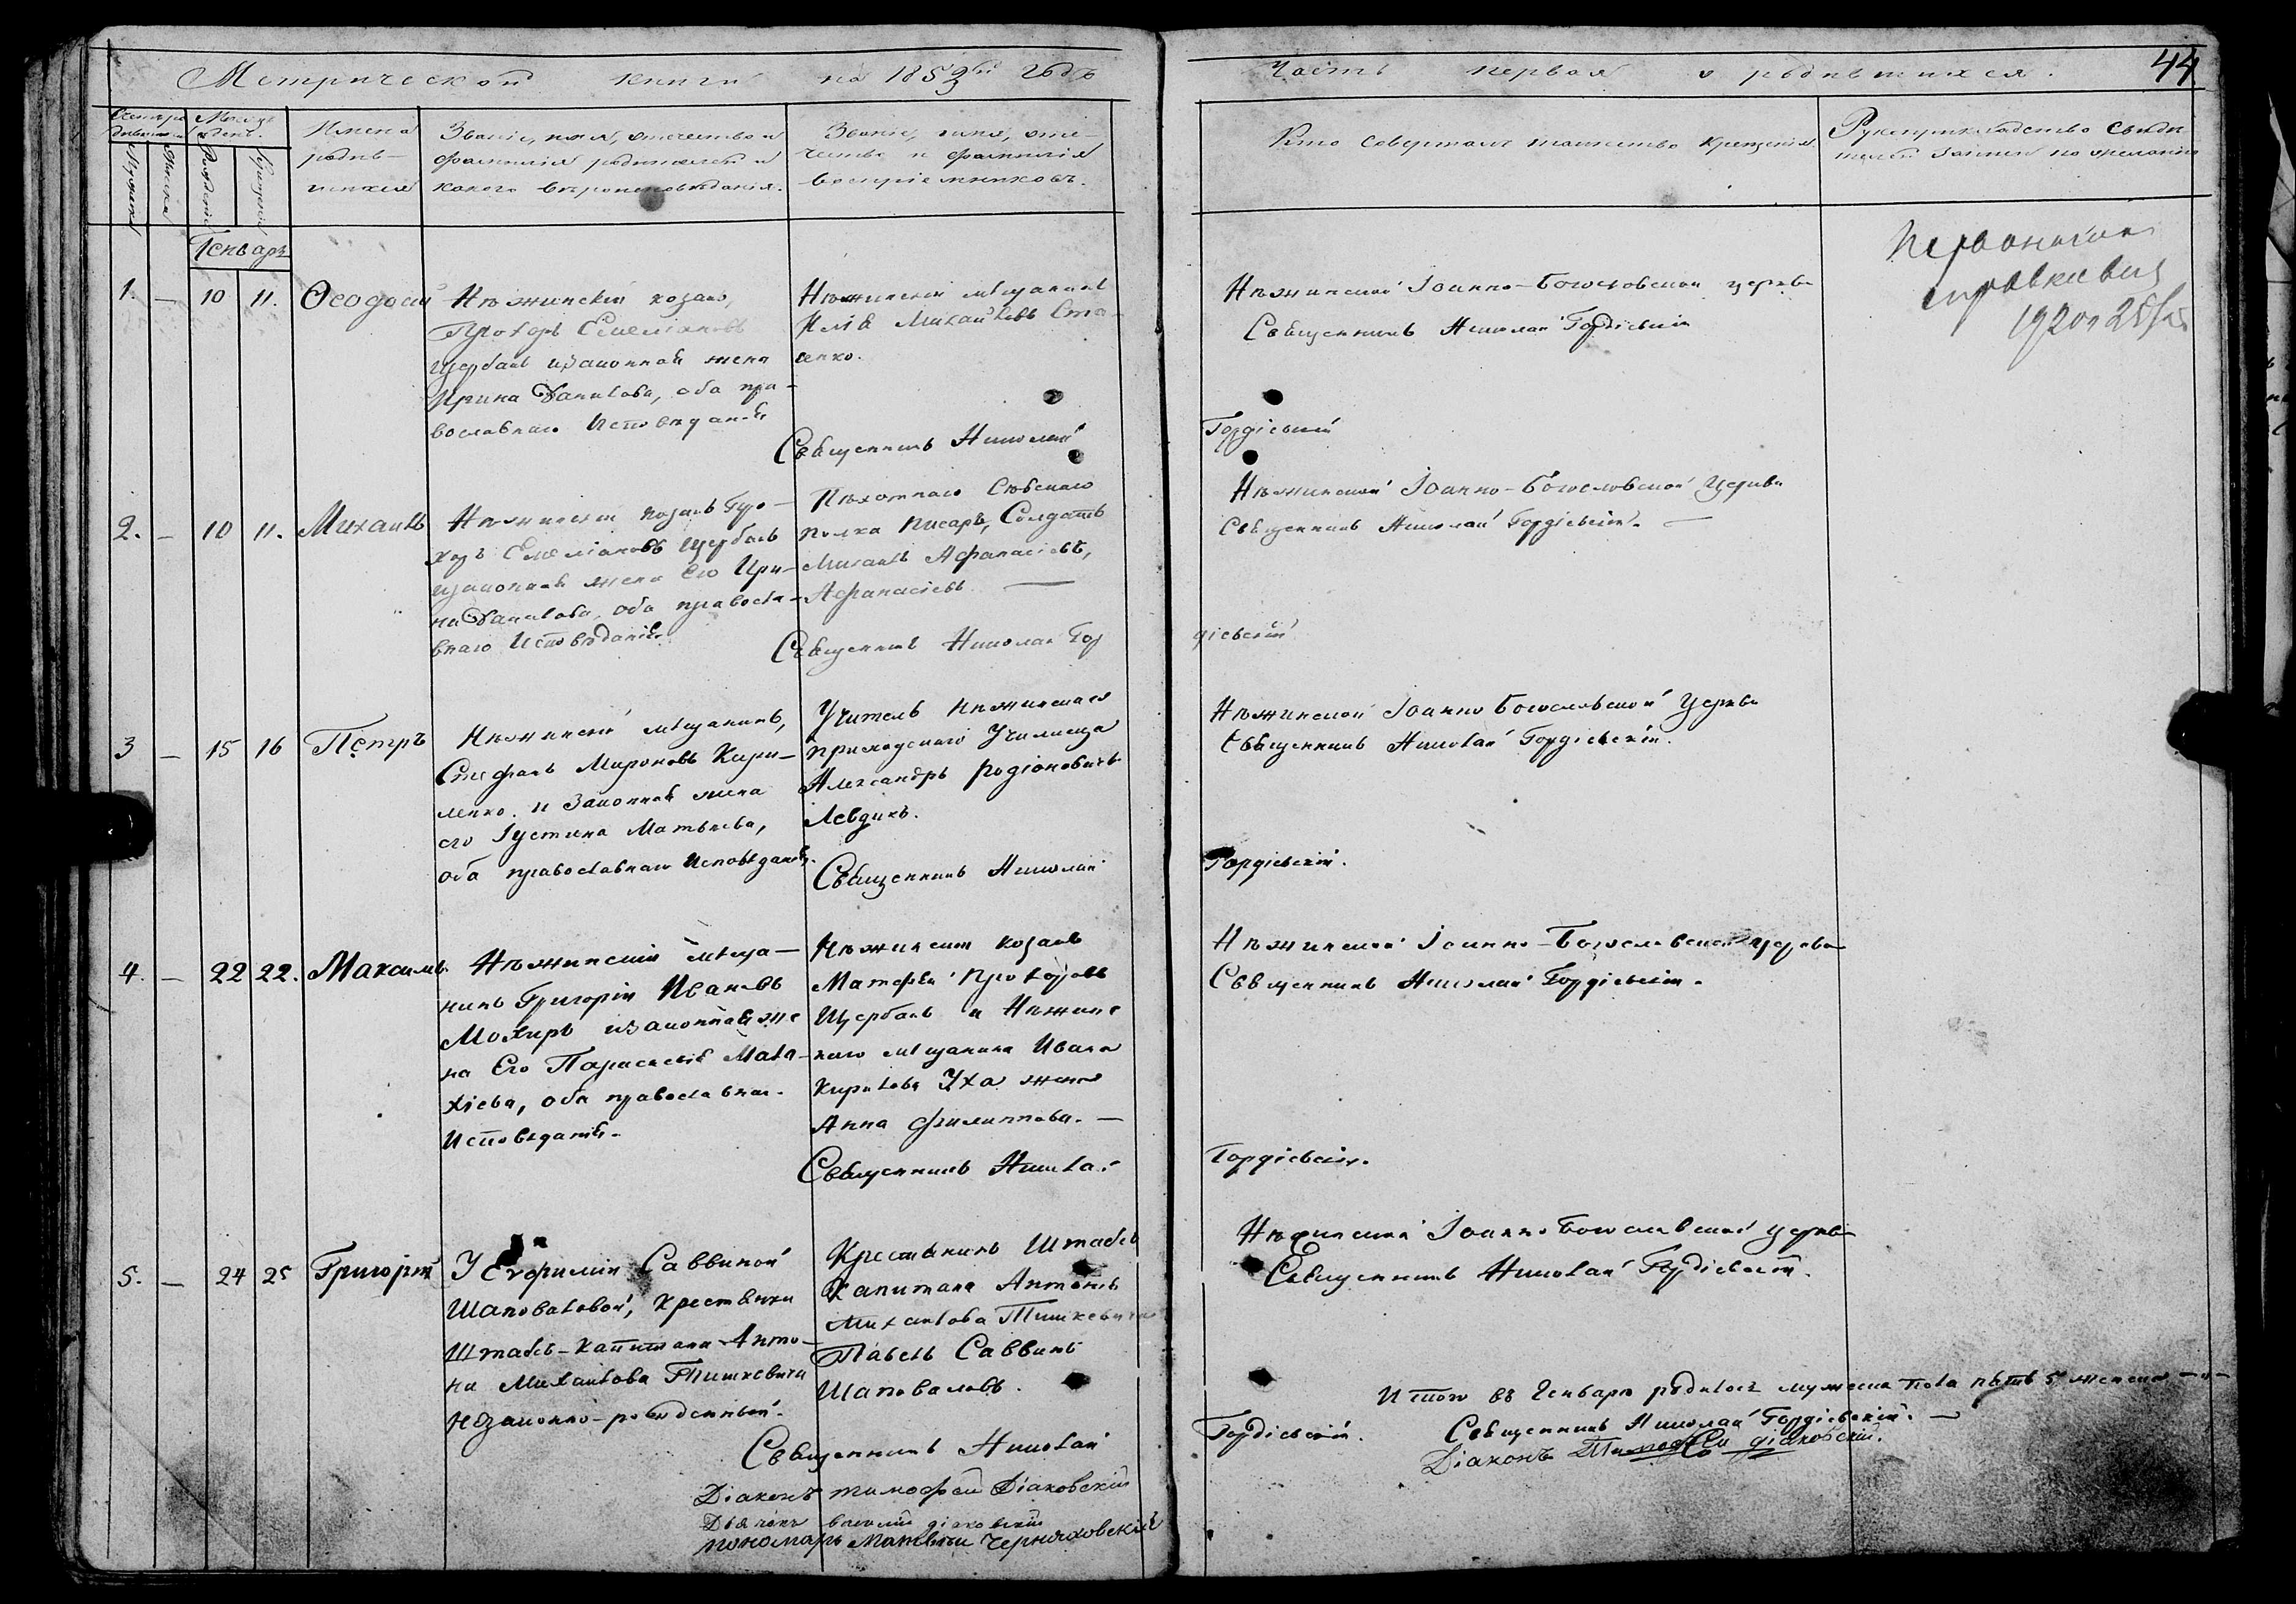 Метрической книги на 1853й годъ
Часть первая о родившихся.
44
Мѣсяцъ и день.
Имена родив-
шихся
Званіе, имя, отчество и
фамилія родителей и
какого вѣроисповѣданія.
Званіе, имя, оте-
чество и фамилія
воспріемниковъ.
Кто совершалъ таинство крещенія
Рукоприкладство свидѣ-
телей записи по желанію
Генварь
1. — 10 11. Ѳеодосій
Нѣжинскій козакъ,
Прохоръ Емеліановъ
Щербакъ и законная жена
Ирина Данилова, оба пра-
вославнаго Исповѣданія
Нѣжинскій мѣщанинъ
Илія Михайловъ Ста-
сенко.
Нѣжинской Іоанно-Богословской церкви
Священникъ Николай Гордіевскій
1920 25/
Священникъ Николай Гордіевскій
2. — 10 11. Михаилъ
Нѣжинскій козакъ Про-
хоръ Емеліановъ Щербакъ
и законная жена его Ири-
на Данилова, оба правосла-
внаго Исповѣданія
Пѣхотнаго Сѣвскаго
полка писарь, Солдатъ
Михаилъ Афанасіевъ,
Афанасіевъ —
Нѣжинской Іоанно-Богословской Церкви
Священникъ Николай Гордіевскій. —
Священникъ Николай Гордіевскій
3 — 15 16 Петръ
Нѣжинскій мѣщанинъ,
Стефанъ Мироновъ Кири-
ленко и Законная жена
его Іустина Матвѣева,
оба православнаго Исповѣданія.
Учитель Нѣжинскаго
приходскаго Училища
Александръ Родіоновичъ
Левдикъ.
Нѣжинской Іоанно Богословской Церкви
Священникъ Николай Гордіевскій.
Священникъ Николай Гордіевскій.
4. — 22 22. Максимъ.
Нѣжинскій мѣща-
нинъ Григорій Ивановъ
Мохиръ и законная же
на Его Параскевія Мала-
хіева, оба православнаго
Исповѣданія.
Нѣжинскій козакъ
Матфей Прохоровъ
Щербакъ и Нѣжинс
каго мѣщанина Ивана
Кирилова Уха жена
Анна Филиппова. —
Нѣжинской Іоанно-Богословской церкви
Священникъ Николай Гордіевскій.
Священникъ Николай Гордіевскій.
5. — 24 25 Григорій
У Евфиміи Саввиной
Шаповаловой, крестьянки
Штабсъ-Капитана Анто-
на Михаилова Тишкевича
незаконно-рожденный.
Крестьянинъ Штабсъ
Капитана Антона
Михаилова Тишкевича
Павелъ Саввинъ
Шаповаловъ.
Нѣжинской Іоанно Богословской церкви
Священникъ Николай Гордіевскій.
Итого въ Генварѣ родилось мужеска пола пять 5 женска —
Священникъ Николай Гордіевскій.
Священникъ Николай Гордіевскій. —
Діаконъ Тимофей Діаковскій.
Діаконъ Тимофей Діаковскій
Дьячокъ Василій Діаковскій
Пономарь Матвѣй Черняховскій